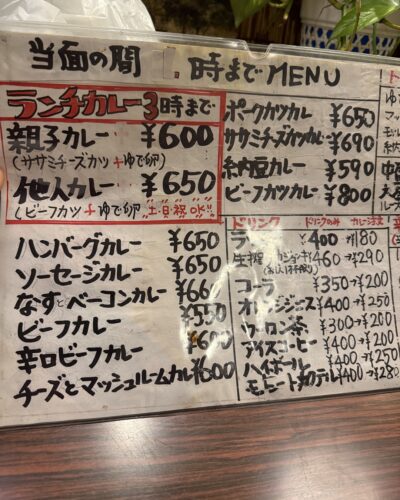 当面の間 時までMENU
ランチカレー3時まで
親子カレー ¥600
(ササミチーズカツ+ゆで卵)
他人カレー ¥650
(ビーフカツ+ゆで卵) 土日祝OK!!
ハンバーグカレー ¥650
ソーセージカレー ¥650
なすとベーコンカレー
ビーフカレー ¥550
辛口ビーフカレー ¥600
チーズとマッシュルームカレ ¥600
ポークカツカレー ¥650
ササミチーズカツカレー ¥690
納豆カレー ¥590
ビーフカツカレー ¥800
ドリンク ドリンクのみ カレー注文
¥400→¥180
¥460→¥290
コーラ ¥350→¥200
オレンジジュース ¥400→¥250
ウーロン茶 ¥300→¥200
アイスコーヒー ¥400→¥200
ハイボール ¥400→¥250
モヒートカクテル ¥400→¥280